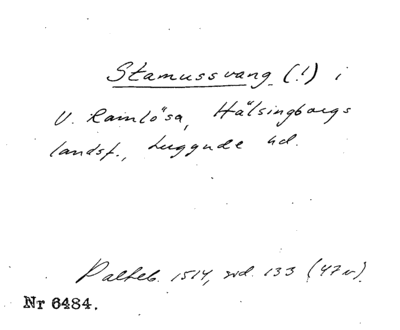 Stamussvang (!) i
V. Ramlösa, Hälsingborgs
landsf., Luggude hd.
Palteb. 1514, sid. 133 (47v).
Nr 6484.